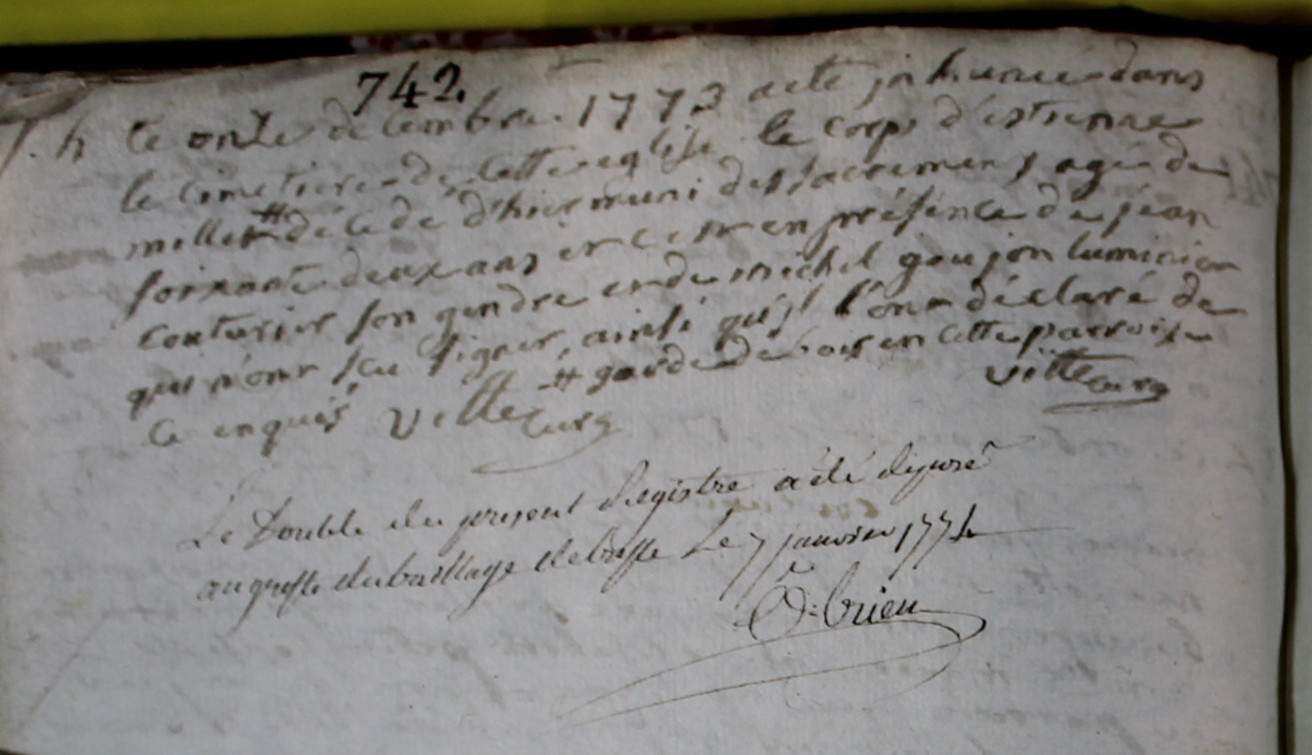 742.
S. h le onze decembre 1773 a eté inhumé dans
le cimetiere de cette eglise le corps d'estienne
millet # décédé d'hier muni des sacremens agé de
soixante deux ans et ce en présence de jean
couturier son gendre et de michel goujon luminier
qui n'ont scu signer, ainsi qu'ils l'ont déclaré de
ce enquis, Villet curé # garde de bois en cette parroisse
Villet curé
Le Double du present Registre a été deposé
au greffe du baillage de bresse Le 7 janvier 1774
O-brien